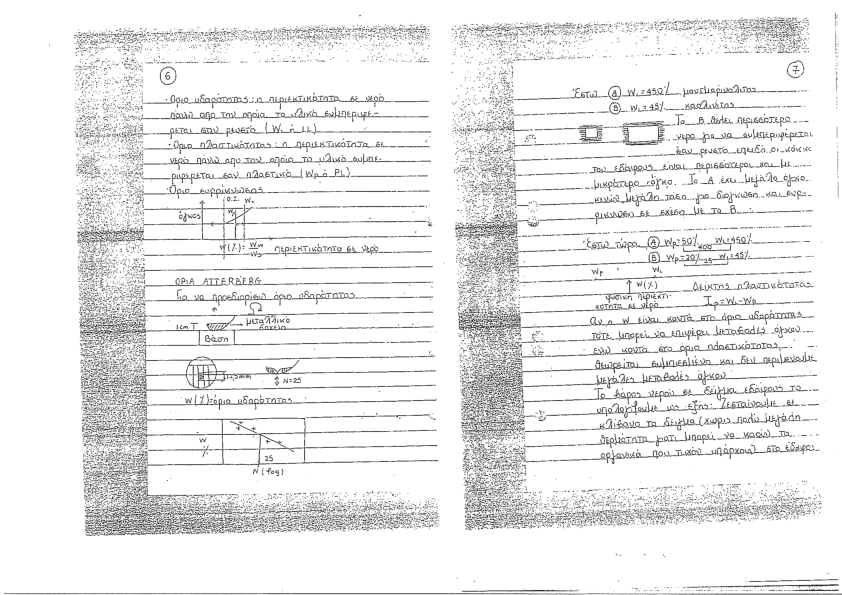 6
· Όριο υδαρότητας: η περιεκτικότητα σε νερό
πάνω από την οποία το υλικό συμπεριφέ-
ρεται σαν ρευστό (WL ή LL)
· Όριο πλαστικότητας: η περιεκτικότητα σε
νερό πάνω από την οποία το υλικό συμπε-
ριφέρεται σαν πλαστικό (Wp ή PL)
· Όριο συρρίκνωσης
WL
όγκος
W(%) = Ww/Ws περιεκτικότητα σε νερό
ΟΡΙΑ ATTERBERG
Για να προσδιορίσω όριο υδαρότητας
1cm
μεταλλικό
Βάση
N=25
W(%)=όριο υδαρότητας
W
%
25
N (log)
7
Έστω Α WL=450% μοντμοριλονίτης
Β WL=45% καολινίτης
Το Β θέλει περισσότερο
νερό για να συμπεριφέρεται
σαν ρευστό επειδή οι κόκκοι
του εδάφους είναι περισσότεροι και με
μικρότερο όγκο. Το Α έχει μεγάλο όγκο
κενών μεγάλη τάση για διόγκωση και συρ-
ρίκνωση σε σχέση με το Β.
Έστω τώρα Α Wp=50% 400 WL=450%
Β Wp=20% 25 WL=45%
Wp WL
W(%) Δείκτης πλαστικότητας
φυσική περιεκτι-
κότητα σε νερό Ip=WL-Wp
Αν η W είναι κοντά στο όριο υδαρότητας
τότε μπορεί να επιφέρει μεταβολές όγκου
ενώ κοντά στο όριο πλαστικότητας
θεωρείται συμπιεσμένο και δεν περιμένουμε
μεγάλες μεταβολές όγκου
Το βάρος νερού σε δείγμα εδάφους το
υπολογίζουμε ως εξής: Ζεσταίνουμε σε
κλίβανο το δείγμα (χωρίς πολύ μεγάλη
θερμότητα γιατί μπορεί να καούν τα
οργανικά που τυχόν υπάρχουν στο έδαφος